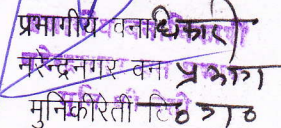 प्रभागीय वनाधिकारी
नरेन्द्रनगर वन प्रभाग
मुनिकीरेती टि० ग०